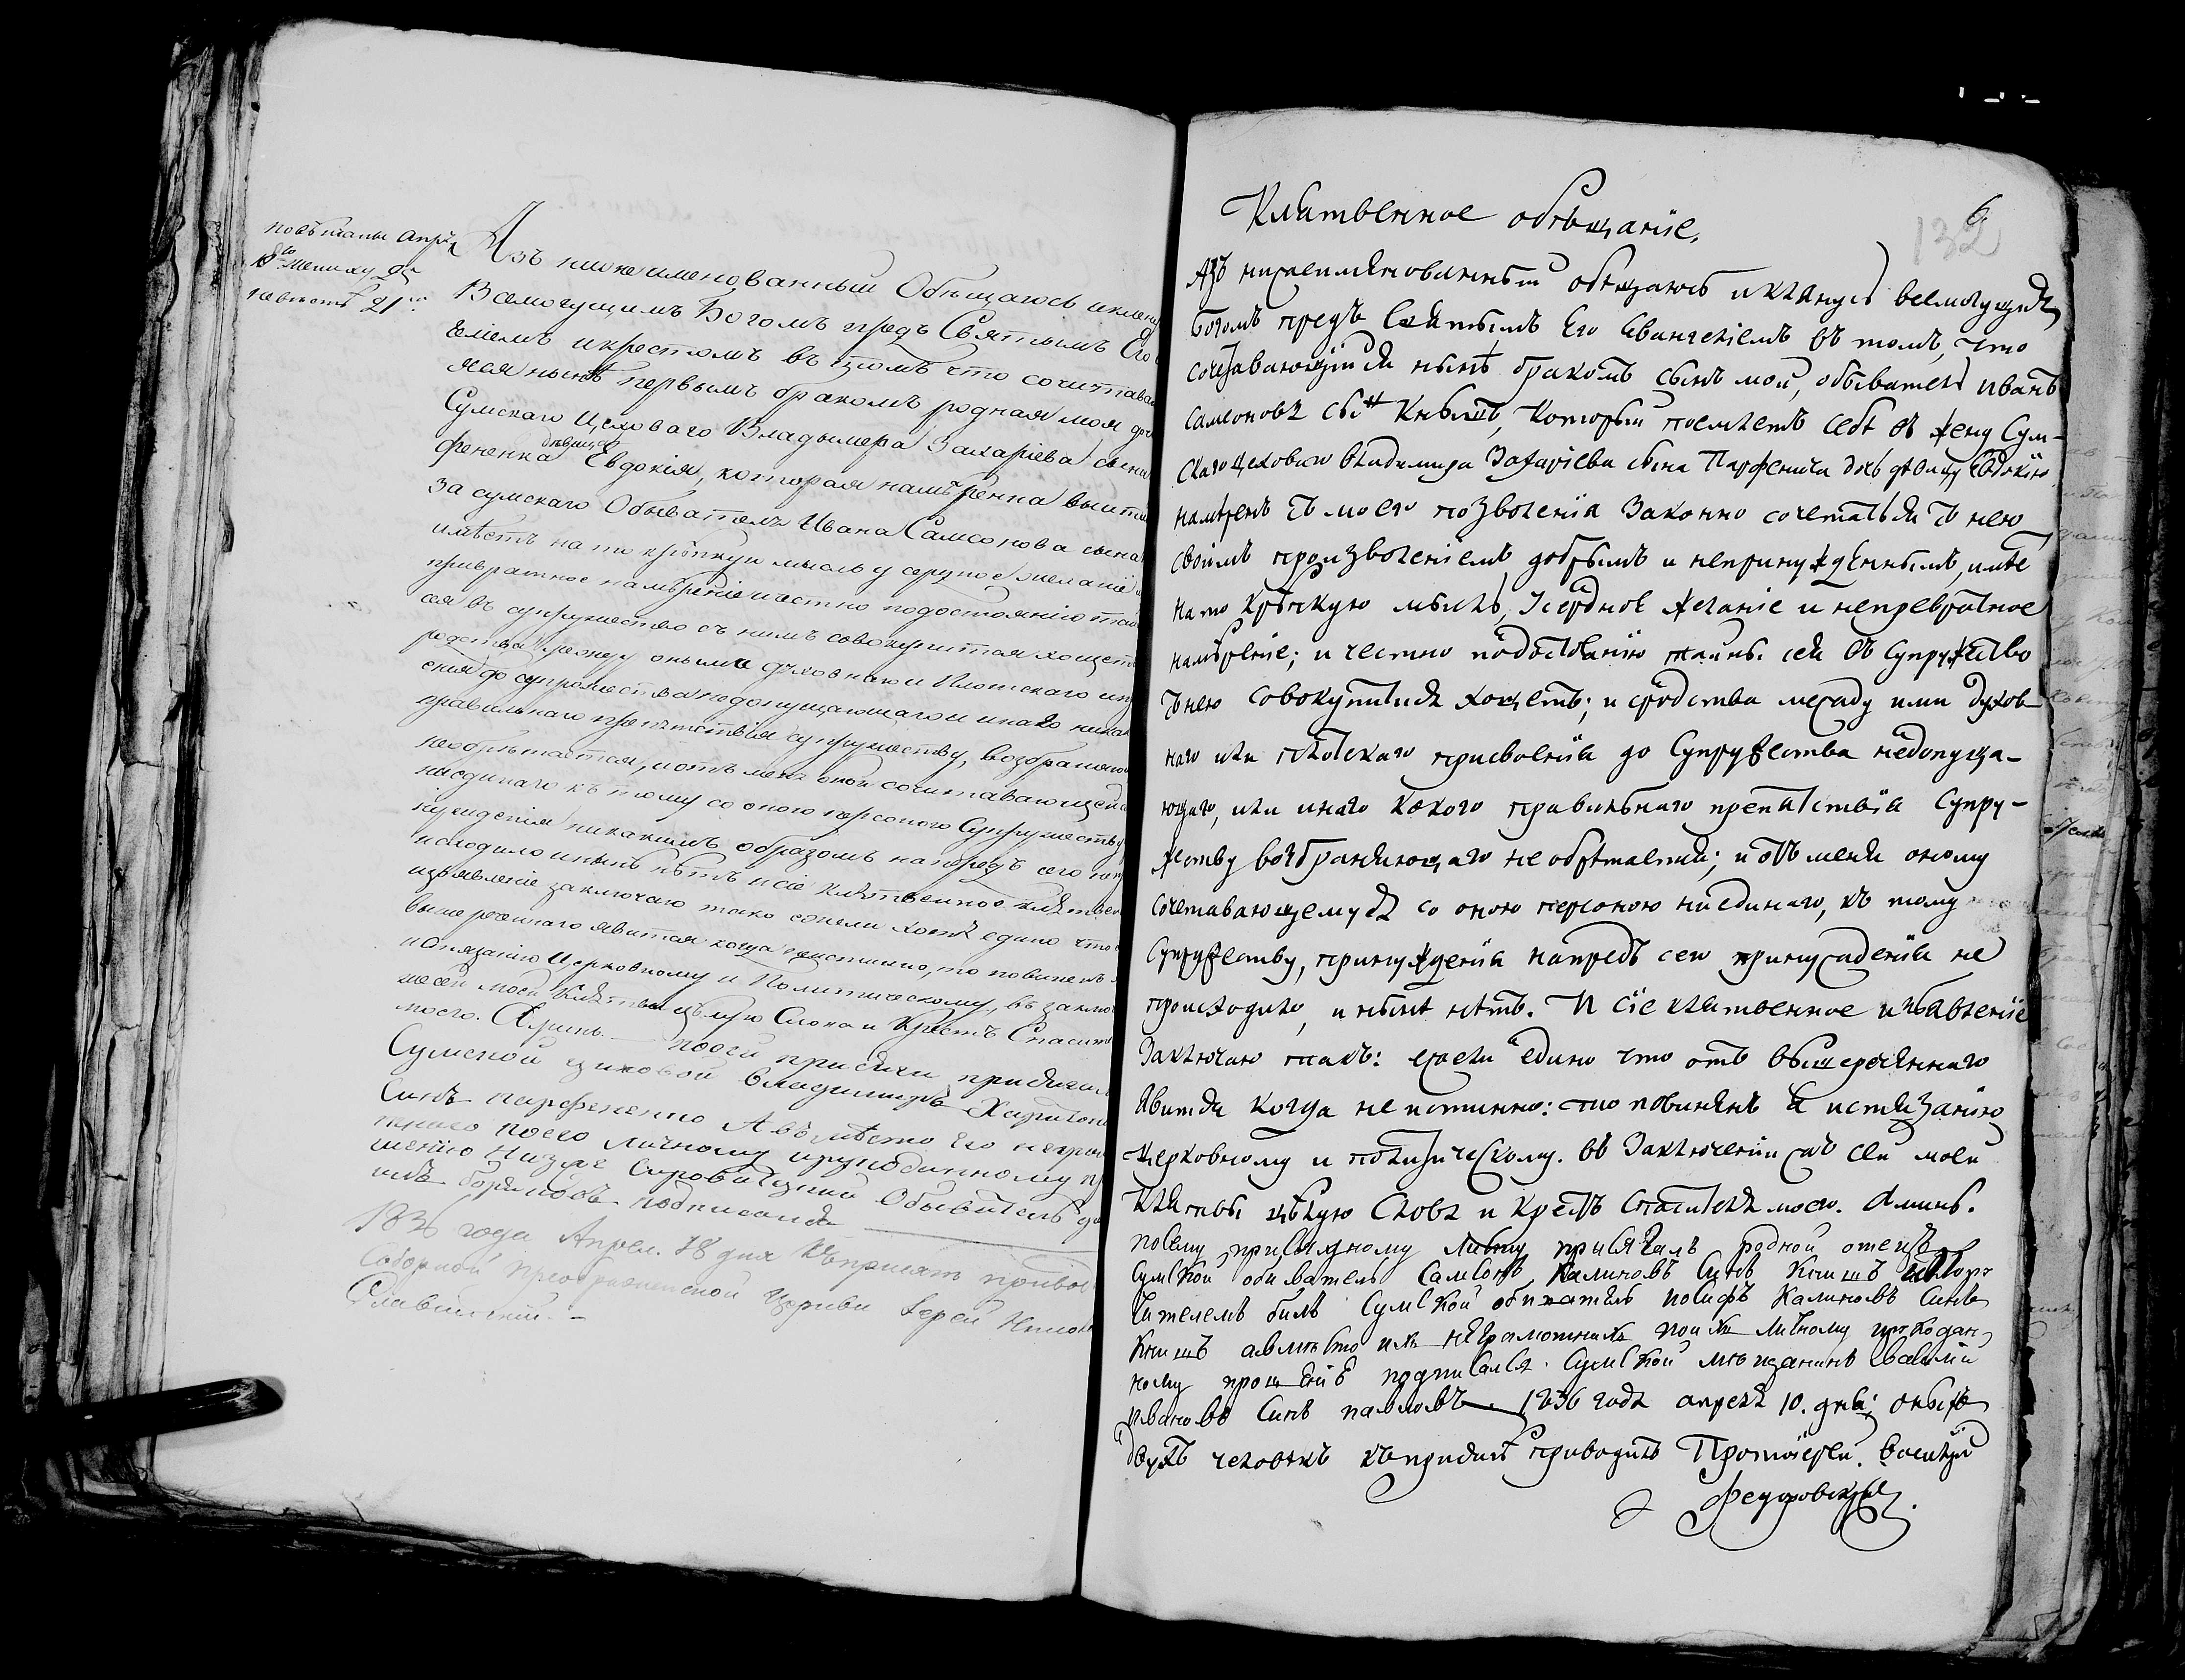 повѣнчаны апрѣл
18го жениху 25
невестѣ 21
Азъ нижеименованный Обѣщаюсь и клену
Всемогущимъ Богомъ предъ Святымъ Его
геліемъ и крестомъ въ томъ что сочитава
яся нынѣ первымъ бракомъ родная моя доч
Сумскаго Цеховаго Владымера Захаріева сына
фененка дѣвица Евдокія, которая намѣренна выйти
за сумскаго Обывателя Ивана Самсонова сына
имѣетъ на то крѣпкую мысль усердное желаніе
превратное намѣреніе и честно подостоянію тай
сея въ супружество съ нимъ совокупится хощетъ
родства между оными духовнаго и Плотскаго
сния до супружества недопущающаго и инаго никак
правильнаго препятствія супружеству, возбраняю
необрѣтается, и отъ мене оной сочитавающейся
ниединаго къ тому со оною персоною Супружеству
нужденія никакимъ образомъ напредъ сего
исходило и нынѣ нѣтъ и сіе клятвенное
изъявленіе заключаю тако ежели хотя едино что
вышереченнаго явится когда неистинно, то повиненъ
истязанію Церковному и Политическому, въ заклю
же сей моей Клятвы цѣлую Слова и Крестъ Спасит
моего. Аминь. поси присяги присягал
Сумской цеховой Владимиръ Харитон
Синъ парфененко А вьмѣсто Его неграм
тнаго поего личному ирукоданному пр
шенію Низше Сироваткий Обыватель
подписался
1836 года Апрел. 18 дня Къприсягѣ привод
Соборной преображенской Церкви Іерей
Славинский. -
132
6
Клятвенное обѣщаніе.
Азъ нижеимянованный обѣщаюсь и клянусь всемогущимъ
Богомъ предъ Святымъ Его Евангеліемъ въ томъ, что
сочетавающійся нынѣ бракомъ сынъ мой, обыватель Иванъ
Самсоновъ сын Кнышъ, который поемлетъ себѣ въ жену Сум-
скаго цеховаго Владимира Захаріева сына Парфенича дочь дѣвицу Евдокію
намѣренъ съ моего позволенія законно сочетатся съ нею
своимъ произволеніемъ добрымъ и непринужденнымъ, имѣе
на то крѣпкую мысль, усердное желаніе и непревратное
намѣреніе; и честно подостоянію тайны сея въ Супружество
съ нею совокупится хощетъ; и сродства между ими духов-
наго или плотскаго присвоенія до Супружества недопуща-
ющаго, или инаго какого правильнаго препятствія Супру-
жеству возбраняющаго не обрѣтается; и отъ меня оному
сочетавающемуся со оною персоною ниединаго, къ тому
Супружеству, принужденія напредъ сего принужденія не
происходило, и нынѣ нѣтъ. И сіе клятвенное изъявленіе
Заключаю такъ: ежели едино что отъ вышереченнаго
явится когда не истинно: то повиненъ я истязанію
церковному и политическому. въ Заключеніи жъ сей моей
клятвы цѣлую Слова и Крестъ Спасителя моего. Аминь.
посему присяжному листу присягалъ родной отецъ
Сумской обиватель Самсонъ Калиновъ Синъ Книшъ
чителемъ билъ Сумской обиватель Иосифъ Калиновъ Синъ
Книшъ авмѣсто ихъ неграмотнихъ поихъ личному прикодан
ному прошению подписался Сумской мѣщанинъ
Ивановъ Синъ павловъ. 1836 года апреля 10. дня; онихъ
двухъ человѣкъ къприсягѣ приводилъ Протоіерей. Василій
Федоровскій.